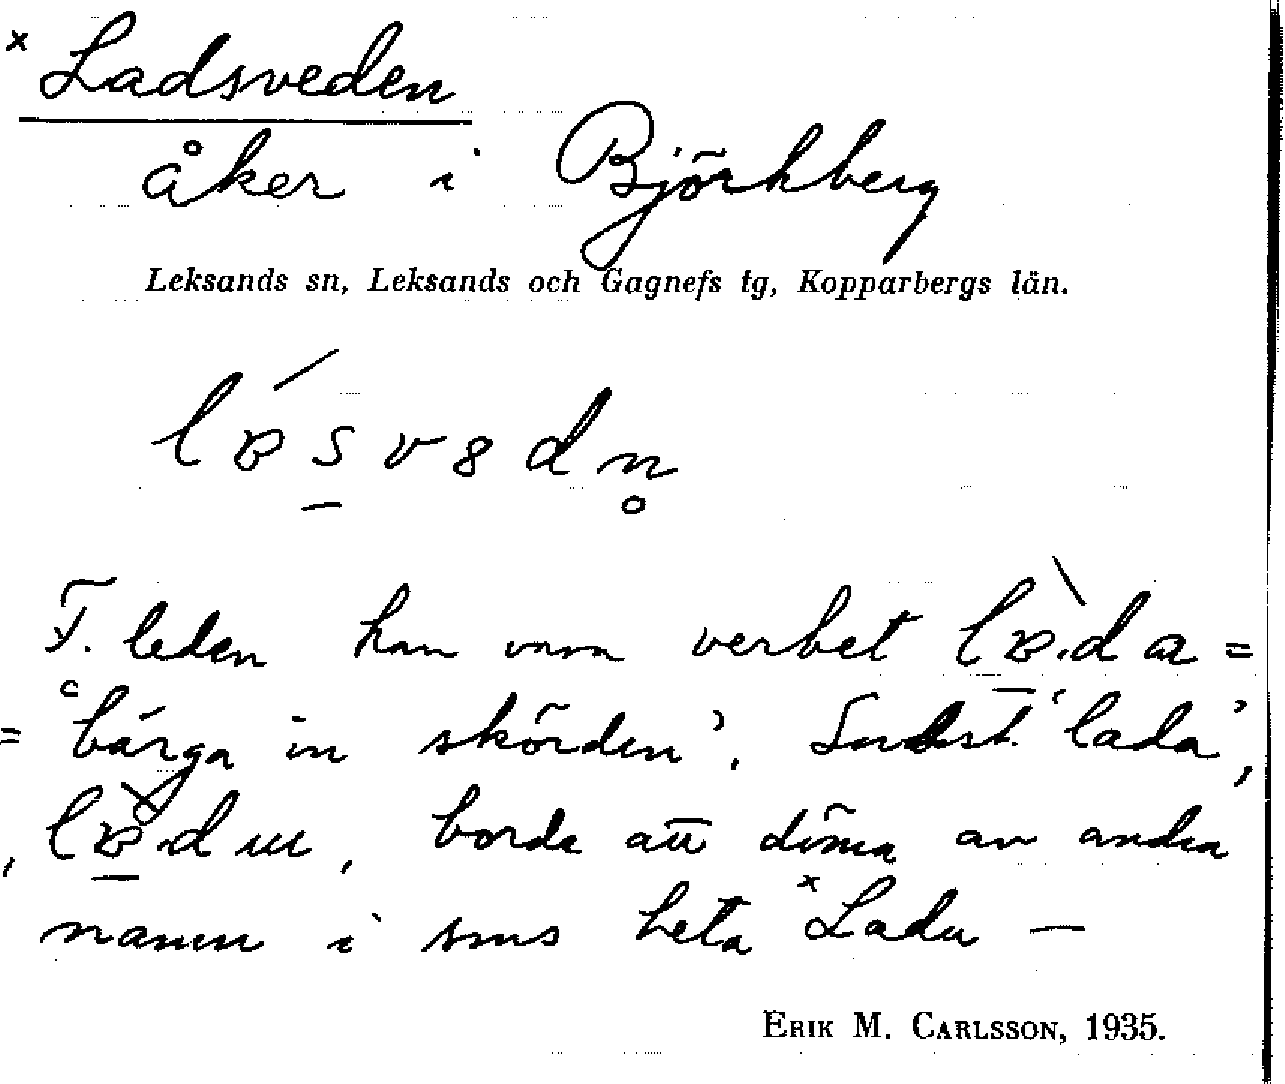 × Ladsveden
åker i Björkberg
Leksands sn, Leksands och Gagnefs tg, Kopparbergs län.
F. leden kan vara verbet =
= 'bärga in skörden'. Subst. 'lada',
, borde att döma av andra
namn i sms heta ×Ladu —
ERIK M. CARLSSON, 1935.